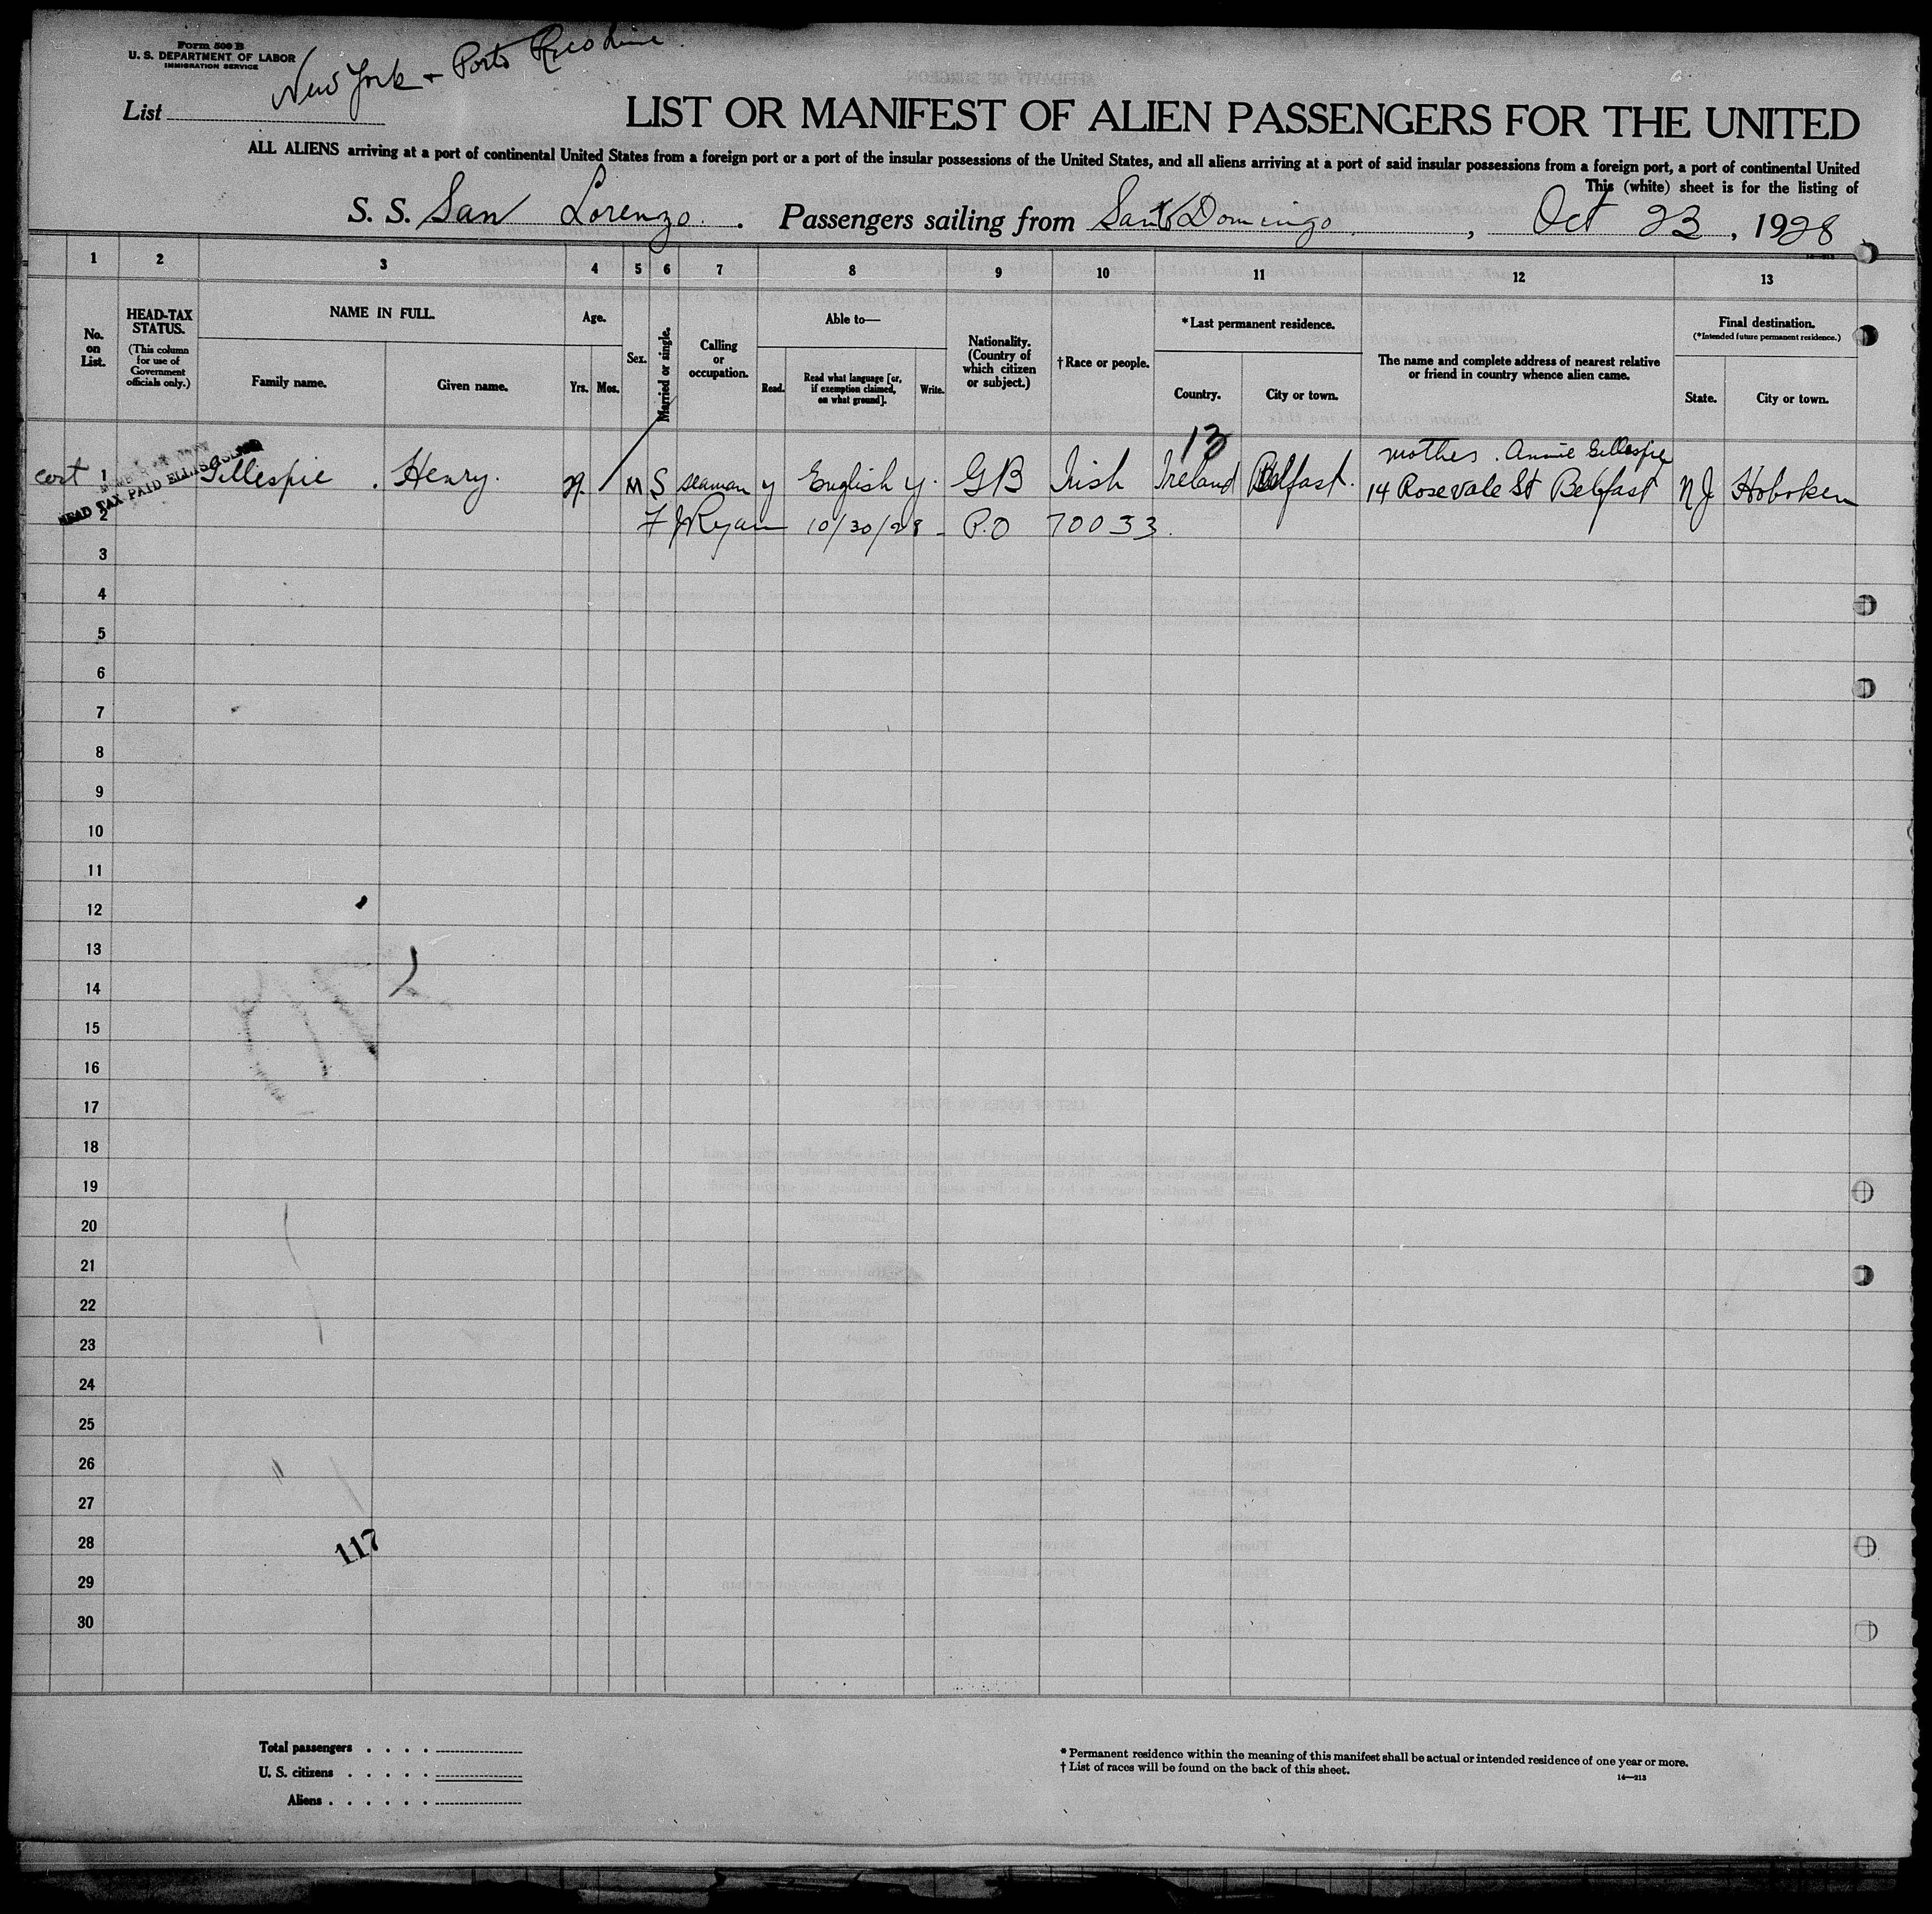 Form 500 B
U. S. DEPARTMENT OF LABOR
IMMIGRATION SERVICE
New York + Porto Rico Line
List
LIST OR MANIFEST OF ALIEN PASSENGERS FOR THE UNITED
ALL ALIENS arriving at a port of continental United States from a foreign port or a port of the insular possessions of the United States, and all aliens arriving at a port of said insular possessions from a foreign port, a port of continental United
This (white) sheet is for the listing of
S. S. San Lorenzo. Passengers sailing from Santo Domingo, Oct 23, 1928
14-213
1 2 3 4 5 6 7 8 9 10 11 12 13
No. on List.
HEAD-TAX STATUS.
(This column for use of Government officials only.)
NAME IN FULL.
Family name.
Given name.
Age.
Yrs. Mos.
Sex.
Married or single.
Calling or occupation.
Able to—
Read.
Read what language [or, if exemption claimed, on what ground].
Write.
Nationality. (Country of which citizen or subject.)
†Race or people.
*Last permanent residence.
Country.
City or town.
The name and complete address of nearest relative or friend in country whence alien came.
Final destination.
(*Intended future permanent residence.)
State.
City or town.
13
cert 1 Gillespie Henry. M S seaman y English y. GB Irish Ireland Belfast. mother. Annie Gillespie
14 Rosevale St Belfast NJ Hoboken
HEAD TAX PAID ELLIS ISLAND
2 F J Ryan 10/30/28 - P.O 70033.
3
4
5
6
7
8
9
10
11
12
13
14
15
16
17
18
19
20
21
22
23
24
25
26
27
28
117
29
30
Total passengers . . . .
U. S. citizens . . . . .
Aliens . . . . . .
* Permanent residence within the meaning of this manifest shall be actual or intended residence of one year or more.
† List of races will be found on the back of this sheet.
14—213